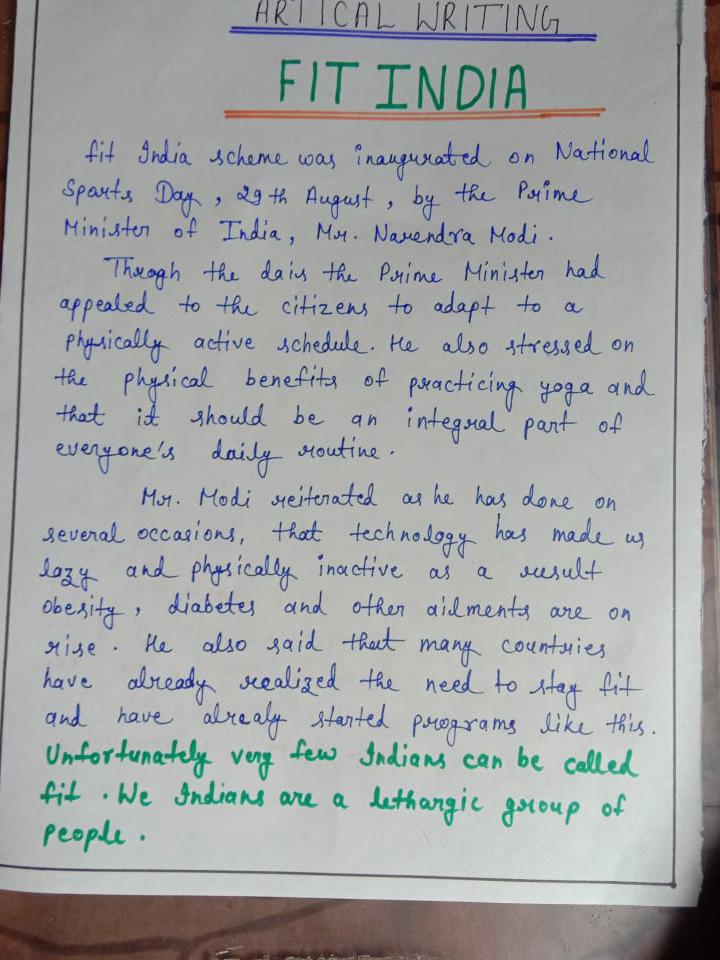 ARTICAL WRITING
FIT INDIA
fit India scheme was inaugurated on National
Sports Day, 29th August, by the Prime
Minister of India, Mr. Narendra Modi.
Throgh the dais the Prime Minister had
appealed to the citizens to adapt to a
physically active schedule. He also stressed on
the physical benefits of practicing yoga and
that it should be an integral part of
everyone's daily routine.
Mr. Modi reiterated as he has done on
several occasions, that technology has made us
lazy and physically inactive as a result
obesity, diabetes and other ailments are on
rise. He also said that many countries
have already realized the need to stay fit
and have alrealy started programs like this.
Unfortunately very few Indians can be called
fit. We Indians are a lethargic group of
people.